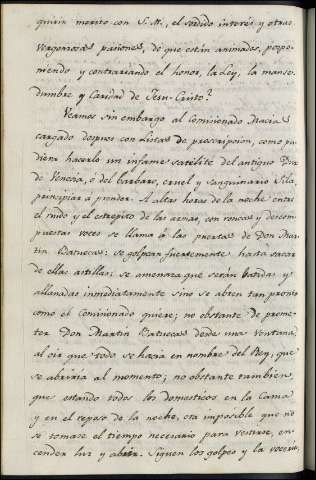 quirir merito con S. M., el sordido interés y otras
vergonzosas pasiones, de que están animados, pospo-
niendo y contrariando el honor, la Ley, la manse-
dumbre y Caridad de Jesu-Cristo?
Veamos sin embargo al Comisionado Macia
cargado despues con Listas de prescripcion, como pu-
diera hacerlo un infame satélite del antiguo Dux
de Venecia, ó del barbaro, cruel y sanguinario Sila,
principiar a prender. A altas horas de la noche entre
el ruido y el estrepito de las armas, con roncas y descom-
puestas voces se llama á las puertas de Don Mar-
tin Batuecas: se golpean fuertemente hasta sacar
de ellas astillas: se amenaza que serán batidas y
allanadas inmediatamente sino se abren tan pronto
como el Comisionado quiere; no obstante de prome-
ter Don Martin Batuecas desde una ventana,
al oir que todo se hacia en nombre del Rey, que
se abriria al momento; no obstante tambien
que estando todos los domesticos en la Cama
y en el reposo de la noche, era imposible que no
se tomase el tiempo necesario para vestirse, en-
cender luz y abrir. Siguen los golpes y la voceria